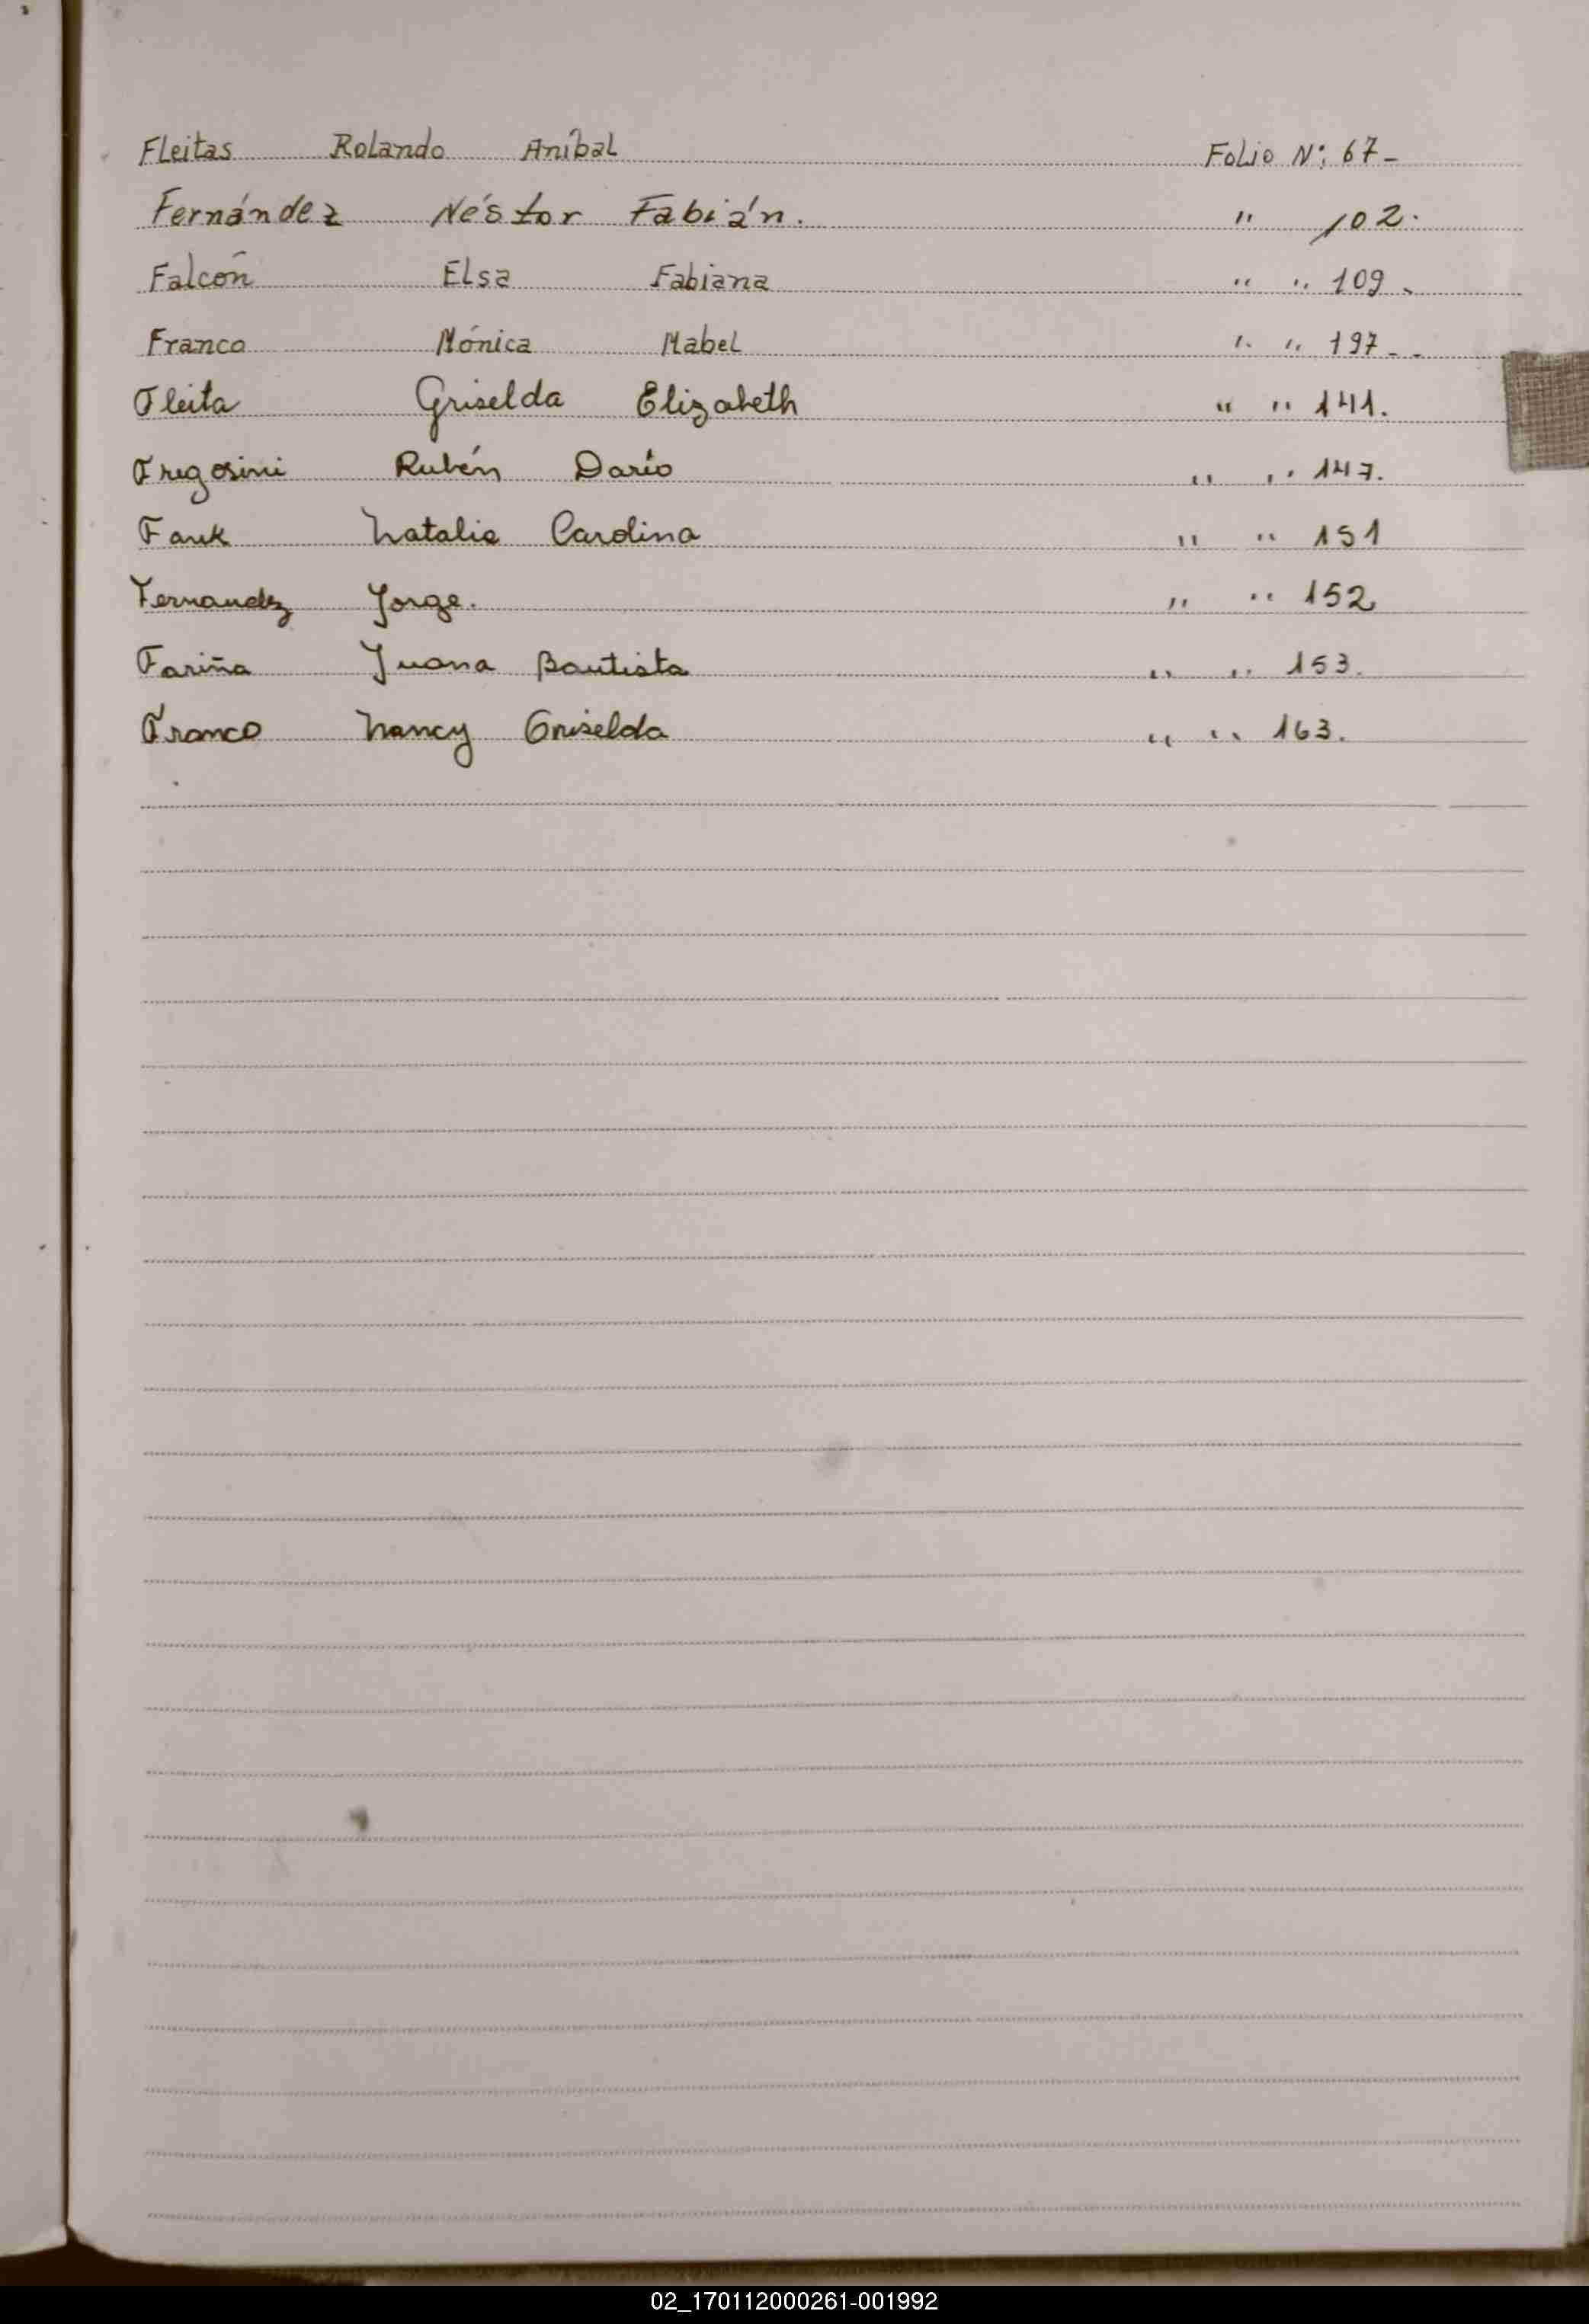 Fleitas Rolando Aníbal Folio N: 67-
Fernández Néstor Fabián. " 102.
Falcón Elsa Fabiana " " 109.
Franco Mónica Mabel " " 197--
Fleita Griselda Elizabeth " " 141.
Fregosini Rubén Darío " " 147.
Fank Natalia Carolina " " 151
Fernandez Jorge. " " 152
Fariña Juana Bautista " " 153.
Franco Nancy Griselda " " 163.
02_170112000261-001992